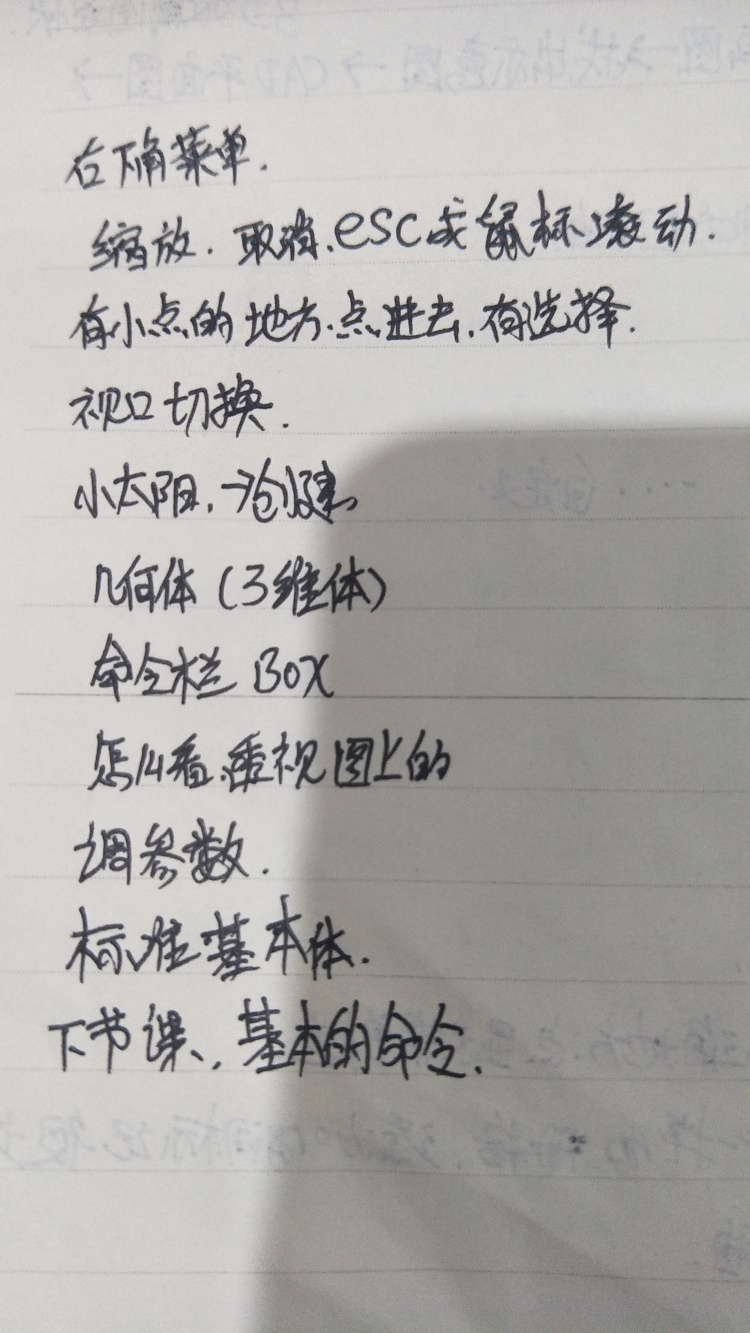 右下角菜单.
缩放.取消.esc或鼠标滚动.
有小点的地方.点进去,有选择.
视口切换.
小太阳,→创建
几何体(3维体)
命令栏 BOX
怎么看.透视图上的
调参数.
标准基本体.
下节课、,基本的命令.